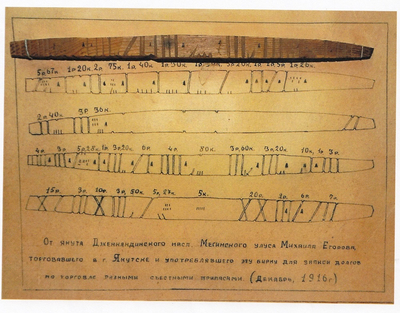 5р.67к. 1р.20к. 2р. 75к. 1р. 40к. 1р. 90к.
2р.40к. 9р. 96к.
4р. 3р. 1р. 3р.20к. 6р. 4р. 80к. 3р.60к. 3р.20к. 10к. 1р. 3р.
15к. 3р. 10р. 3р. 80к. 5к. 20к. 2р. 6р. 7р.
От якута Джеххандинского насл. Мегинского улуса Михаила Егорова,
торговавшего в г. Якутске и употреблявшего эту бирку для записи долгов
по торговле разными съестными припасами. (Декабрь, 1916 г.)